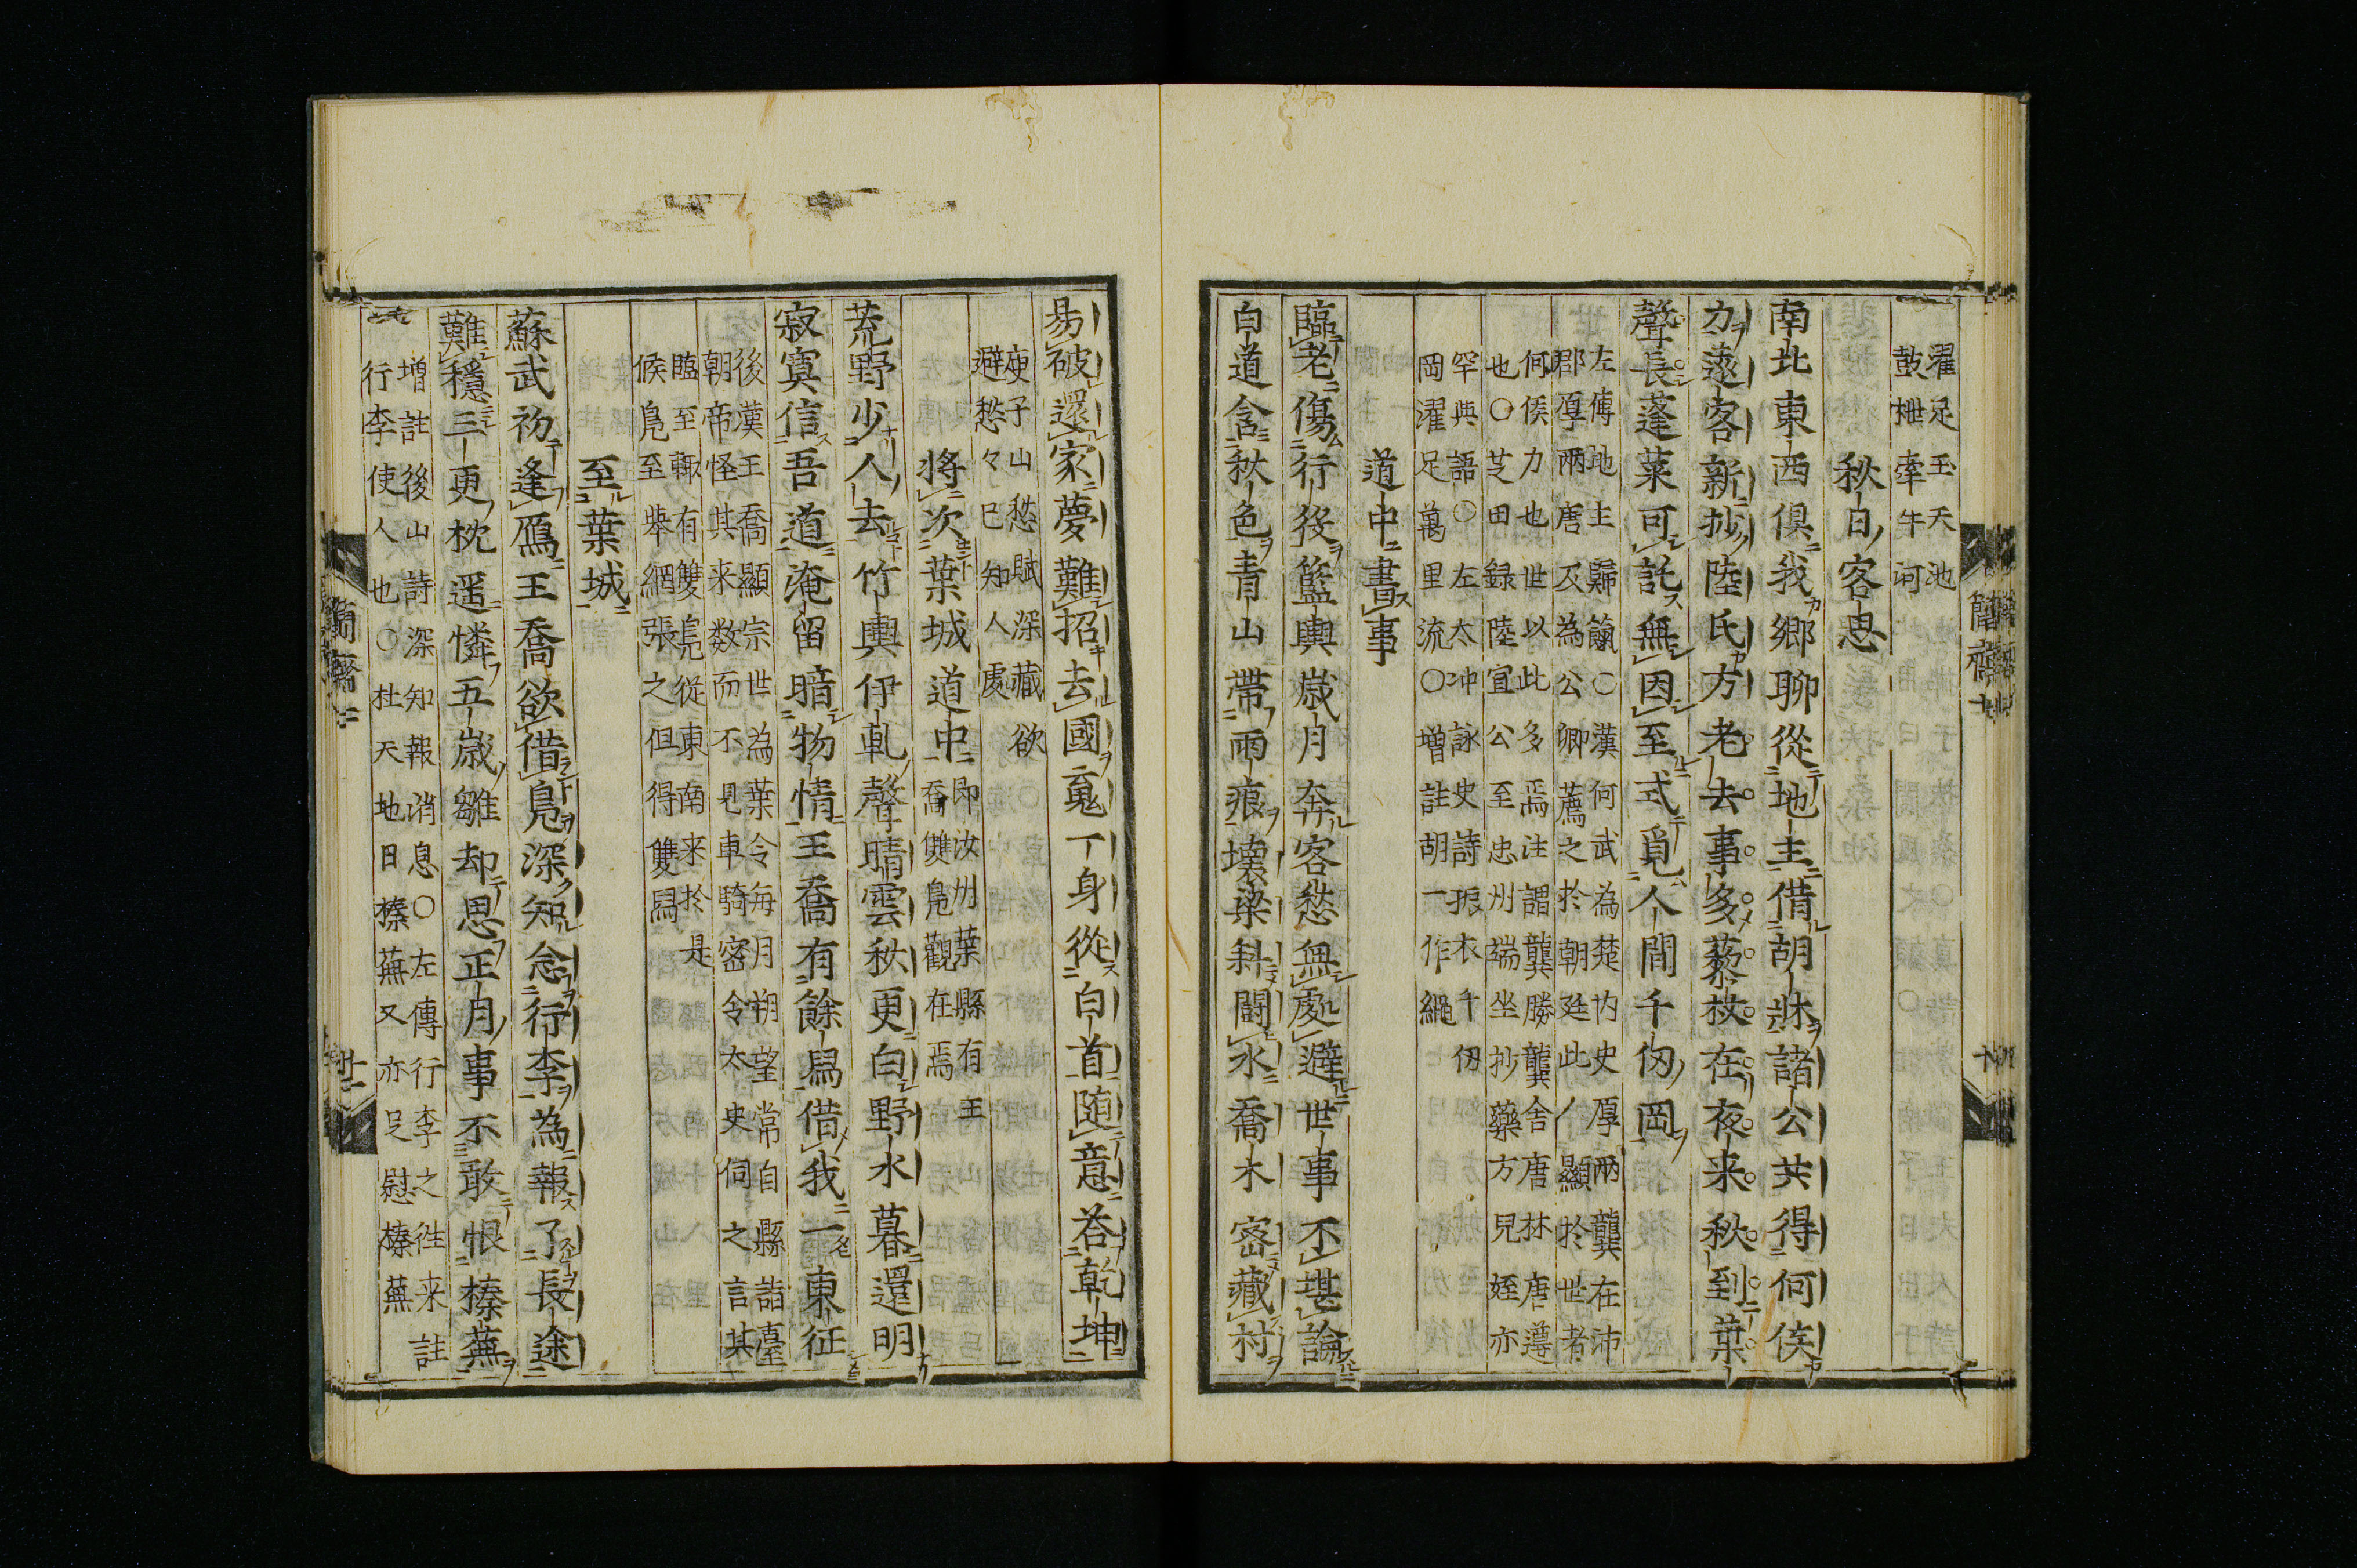 濯足玉天池
鼓枻牽牛河
秋日客思
南北東西俱我鄉聊從地主借胡牀諸公共得何侯
力遠客新抄陸氏方老去事多藜杖在夜来秋到葉
聲長蓬莱可託無因至式覓人間千仞岡
左傳地主歸餼○漢何武為楚内史厚兩龔在沛
郡厚兩唐及為公卿薦之於朝廷此人顯於世者
何侯力也世以此多焉注謂龔勝龔舍唐林唐遵
也○芝田録陸宣公至忠州端坐抄藥方兒姪亦
罕與語○左太冲詠史詩振衣千仞
岡濯足萬里流○增註胡一作繩
道中書事
臨老傷行役籃輿歲月奔客愁無處避世事不堪論
白道含秋色青山帶雨痕壞梁斜鬭水喬木密藏村
易破還家夢難招去國䰟一身從白首随意荅乾坤
庾子山愁賦深藏欲
避愁々已知人處
將次葉城道中
即汝州葉縣有王
喬雙鳧觀在焉
荒野少人去竹輿伊軋聲晴雲秋更白野水暮還明
寂寞信吾道淹留暗物情王喬有餘舄借我一東征
後漢王喬顯宗世為葉令每月朔望常自縣詣臺
朝帝怪其来数而不見車騎密令太史伺之言其
臨至輙有雙鳧從東南来於是
候鳧至擧網張之但得雙舄
至葉城
蘇武初逢鴈王喬欲借鳧深知念行李為報了長途
難穩三更枕遥憐五歲雛却思正月事不敢恨榛蕪
增註後山詩深知報消息○左傳行李之徃来註
行李使人也○杜天地日榛蕪又亦足慰榛蕪
簡齋十
簡齋十
十二